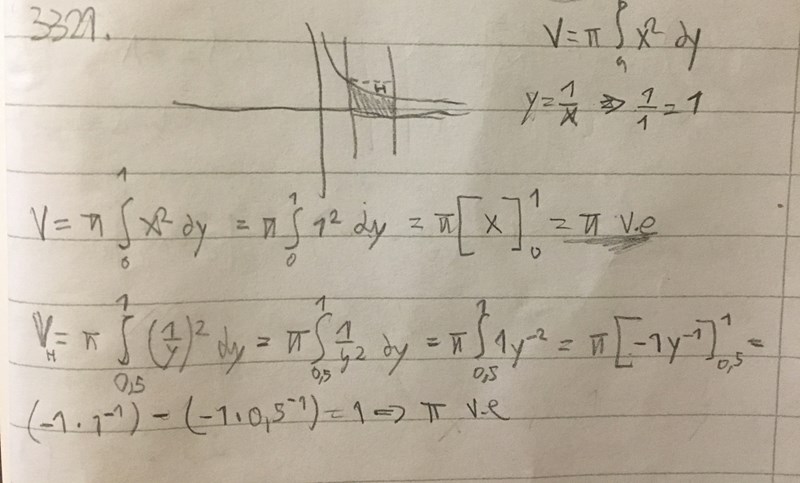 3329.
V = π ∫₉ᵖ x² dy
H
y = 1/x ⇒ 1/1 = 1
V = π ∫₀¹ x² dy = π ∫₀¹ 1² dy = π [x]₀¹ = π v.e
V_H = π ∫₀,₅¹ (1/y)² dy = π ∫₀,₅¹ 1/y² dy = π ∫₀,₅¹ 1y⁻² = π [-1y⁻¹]₀,₅¹ =
(-1·1⁻¹) - (-1·0,5⁻¹) = 1 ⇒ π v.e